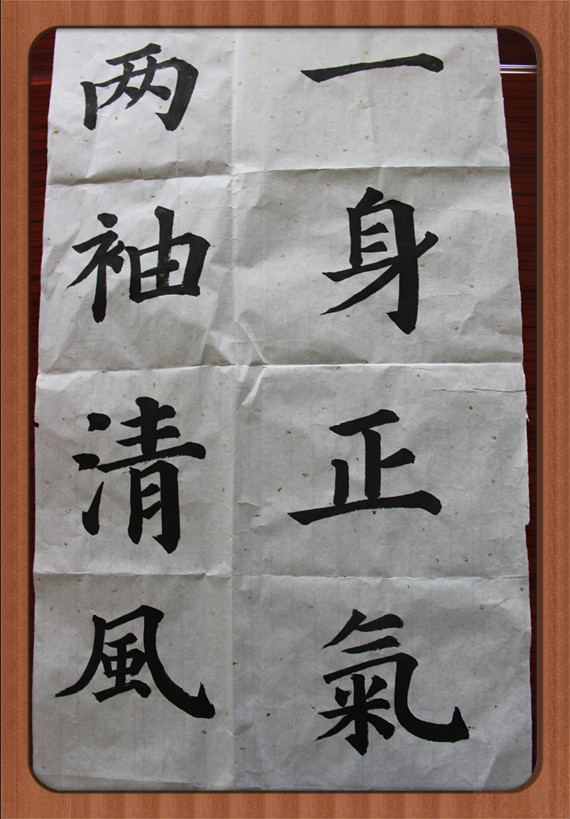 一身正氣
两袖清風